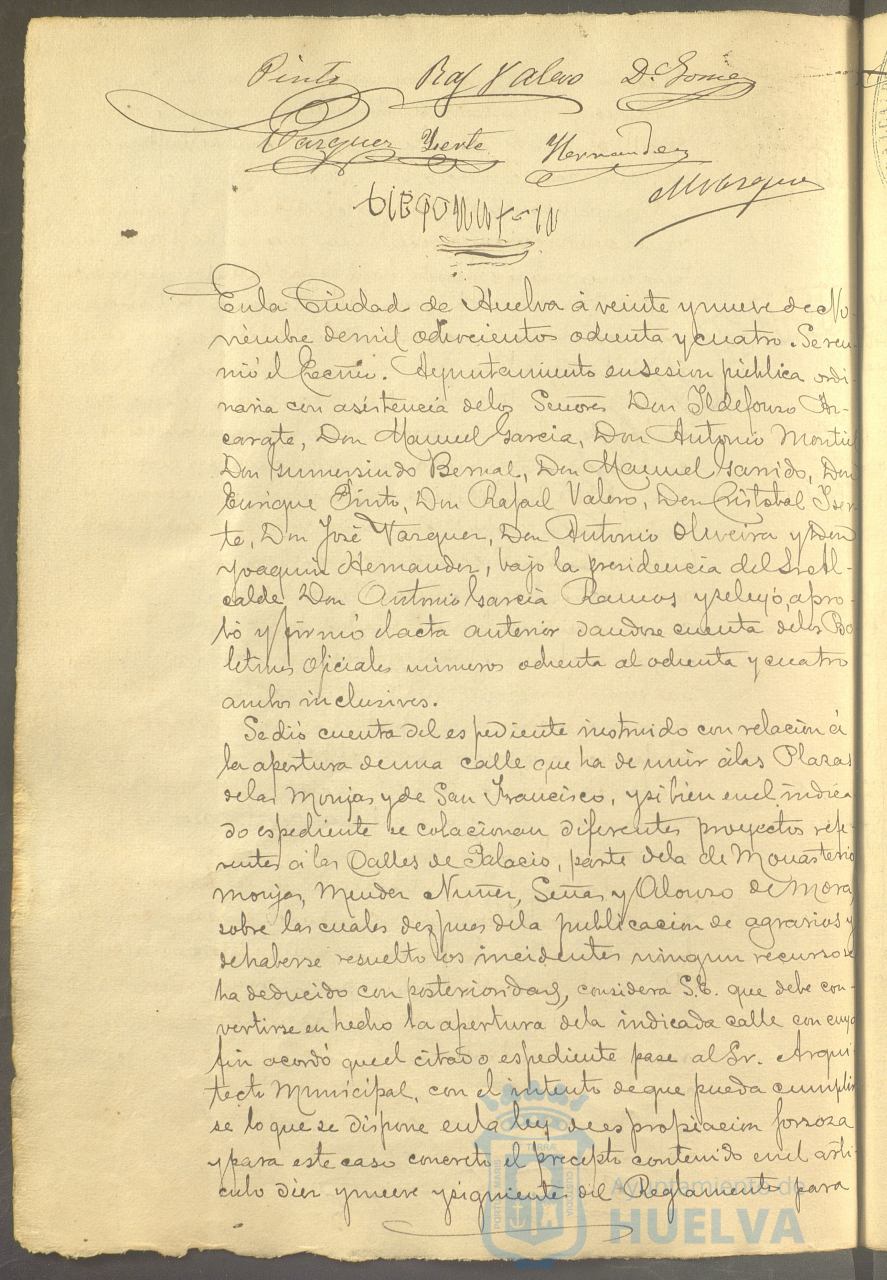 Pinto Raf Valero D. Gomez
Vazquez Yerte Hernandez
MVazquez
En la Ciudad de Huelva á veinte y nueve de No-
viembre de mil ochocientos ochenta y cuatro. Se reu-
nió el Excmo. Ayuntamiento en sesion pública ordi-
naria con asistencia de los Señores Don Ildefonso Az-
carate, Don Manuel Garcia, Don Antonio Montiel
Don Gumersindo Bernal, Don Manuel Garrido, Don
Enrique Pinto, Don Rafael Valero, Don Cristobal Yzer-
te, Don José Vazquez, Don Antonio Oliveira y Don
Joaquin Hernandez, bajo la presidencia del Sr. Al-
calde Don Antonio Garcia Ramos y se leyó, apro-
bó y firmó el acta anterior dandose cuenta de los Bo
letines Oficiales números ochenta al ochenta y cuatro
ambos inclusives.
Se dió cuenta del espediente instruido con relacion á
la apertura de una calle que ha de unir á las Plazas
de las Monjas y de San Francisco, y si bien en el indica
do espediente se colacionan diferentes proyectos refe-
rentes á las Calles de Palacio, parte de la de Monasterio
Monjas, Mendez Nuñez, Señas y Alonso de Mora,
sobre las cuales despues de la publicacion de agravios y
de haberse resuelto los incidentes ningun recurso se
ha deducido con posterioridad, considera S.E. que debe con-
vertirse en hecho la apertura de la indicada calle con cuyo
fin acordó que el citado espediente pase al Sr. Arqui
tecto Municipal, con el intento de que pueda cumplir
se lo que se dispone en la ley de espropiacion forzoza
y para este caso concreto el precepto contenido en el arti-
culo diez y nueve y siguiente del Reglamento para
Ayuntamiento de
HUELVA